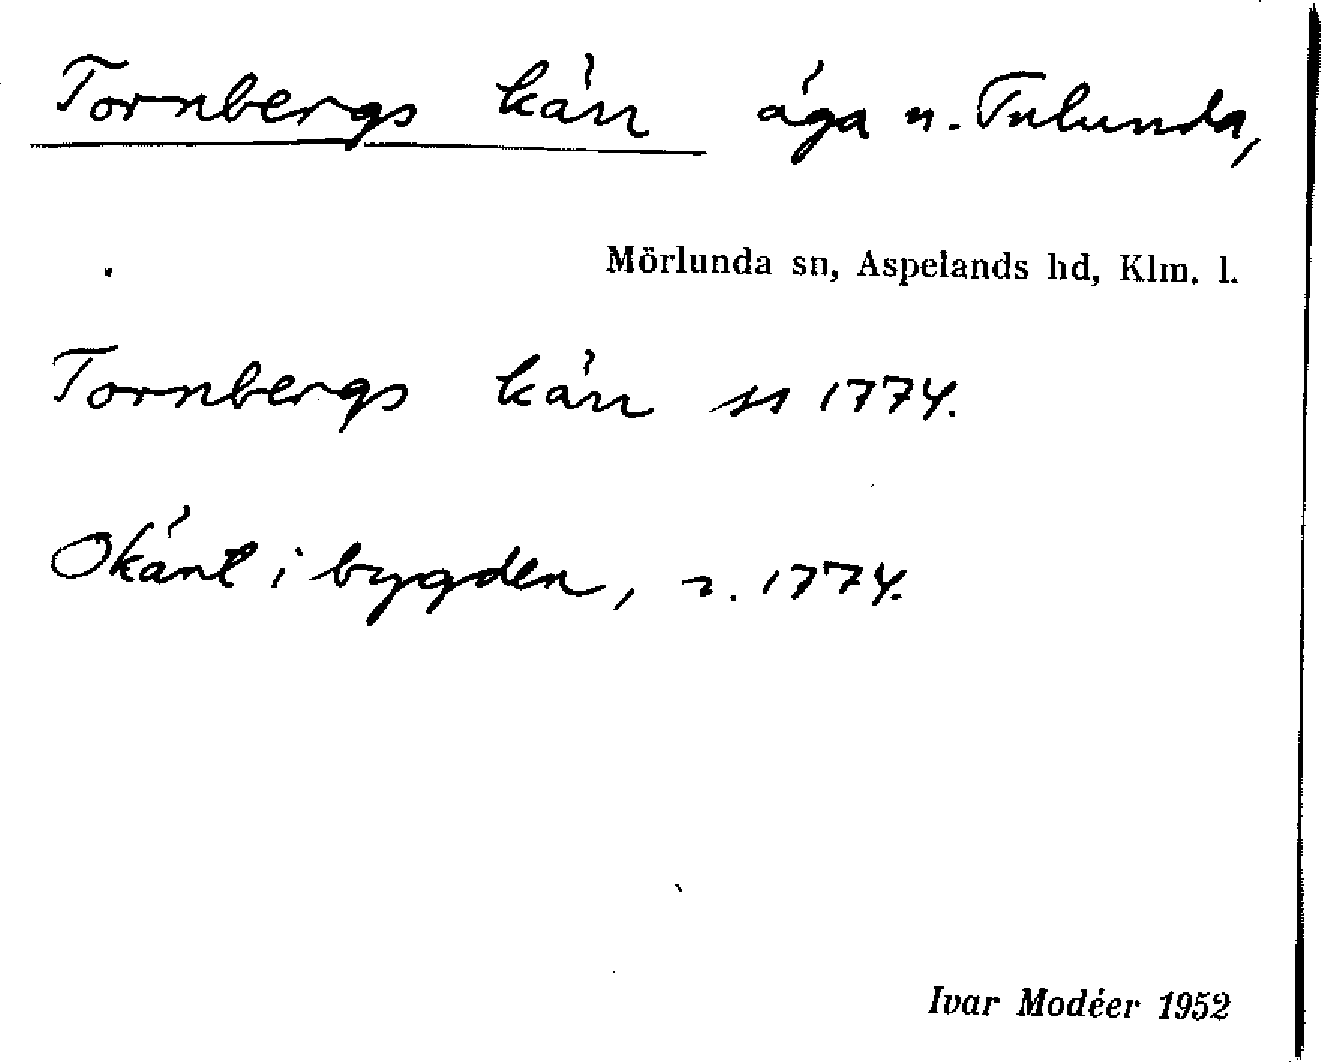 Tornbergs kärr äga n. Tulunda,
Mörlunda sn, Aspelands hd, Klm. l.
Tornbergs kärr ss 1774.
Okänt i bygden, r. 1774.
Ivar Modéer 1952